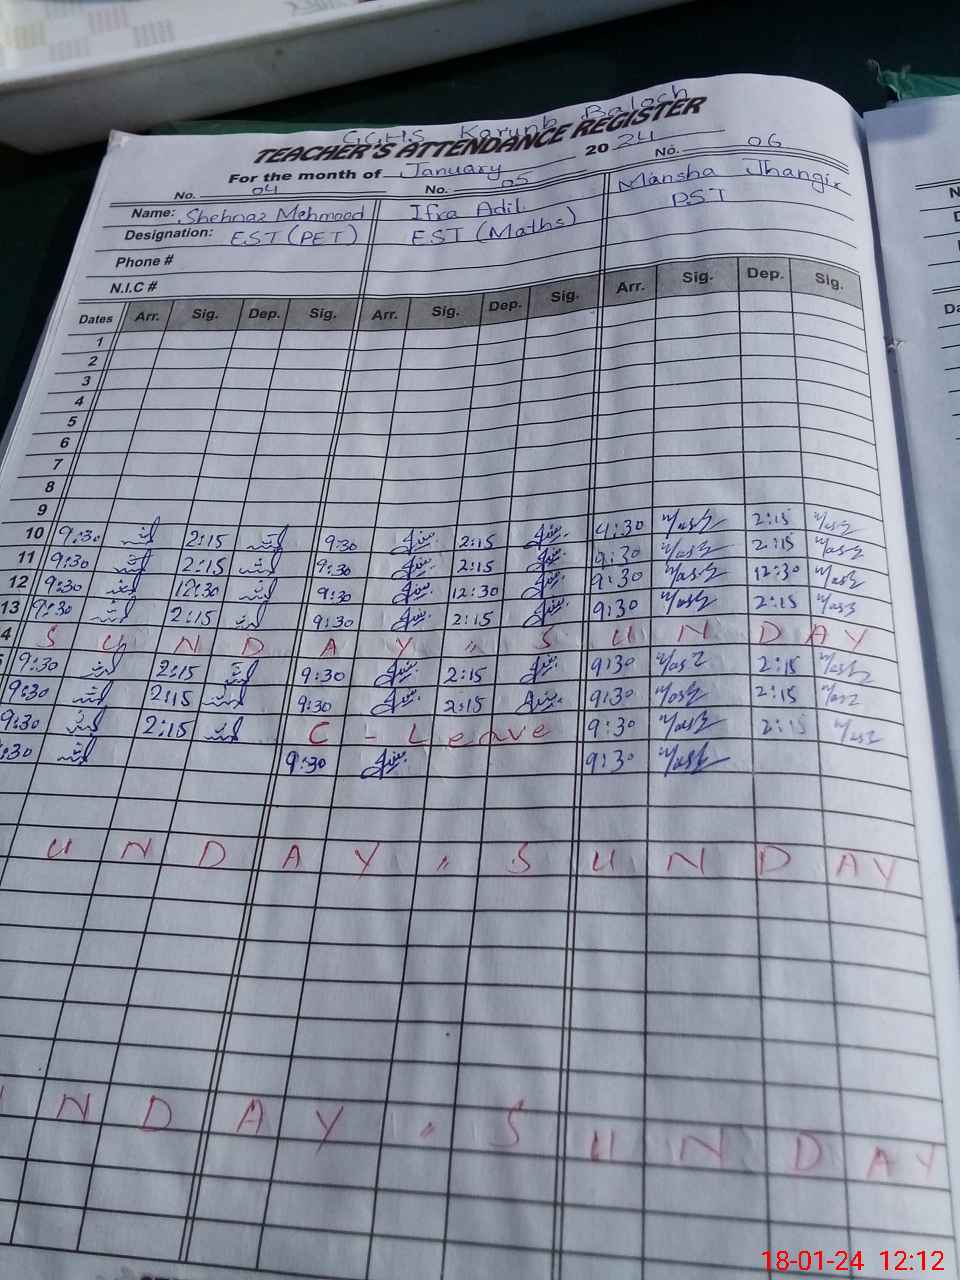 GGHS Karunb Baloch
TEACHER'S ATTENDANCE REGISTER
For the month of January 2024
No. 04 No. 05 No. 06
Name: Shehnaz Mehmood Ifra Adil. Mansha Jhangir
Designation: EST (PET) EST (Maths) PST
Phone #
N.I.C #
Dates Arr. Sig. Dep. Sig. Arr. Sig. Dep. Sig. Arr. Sig. Dep. Sig.
1
2
3
4
5
6
7
8
9
10 9:30 2:15 9:30 2:15 9:30 2:15
11 9:30 2:15 9:30 2:15 9:30 2:15
12 9:30 12:30 9:30 12:30 9:30 12:30
13 9:30 2:15 9:30 2:15 9:30 2:15
4 S U N D A Y " S U N D A Y
9:30 2:15 9:30 2:15 9:30 2:15
9:30 2:15 9:30 2:15 9:30 2:15
9:30 2:15 C - Leave 9:30 2:15
:30 9:30 9:30
U N D A Y " S U N D A Y
N D A Y " S U N D A Y
18-01-24 12:12